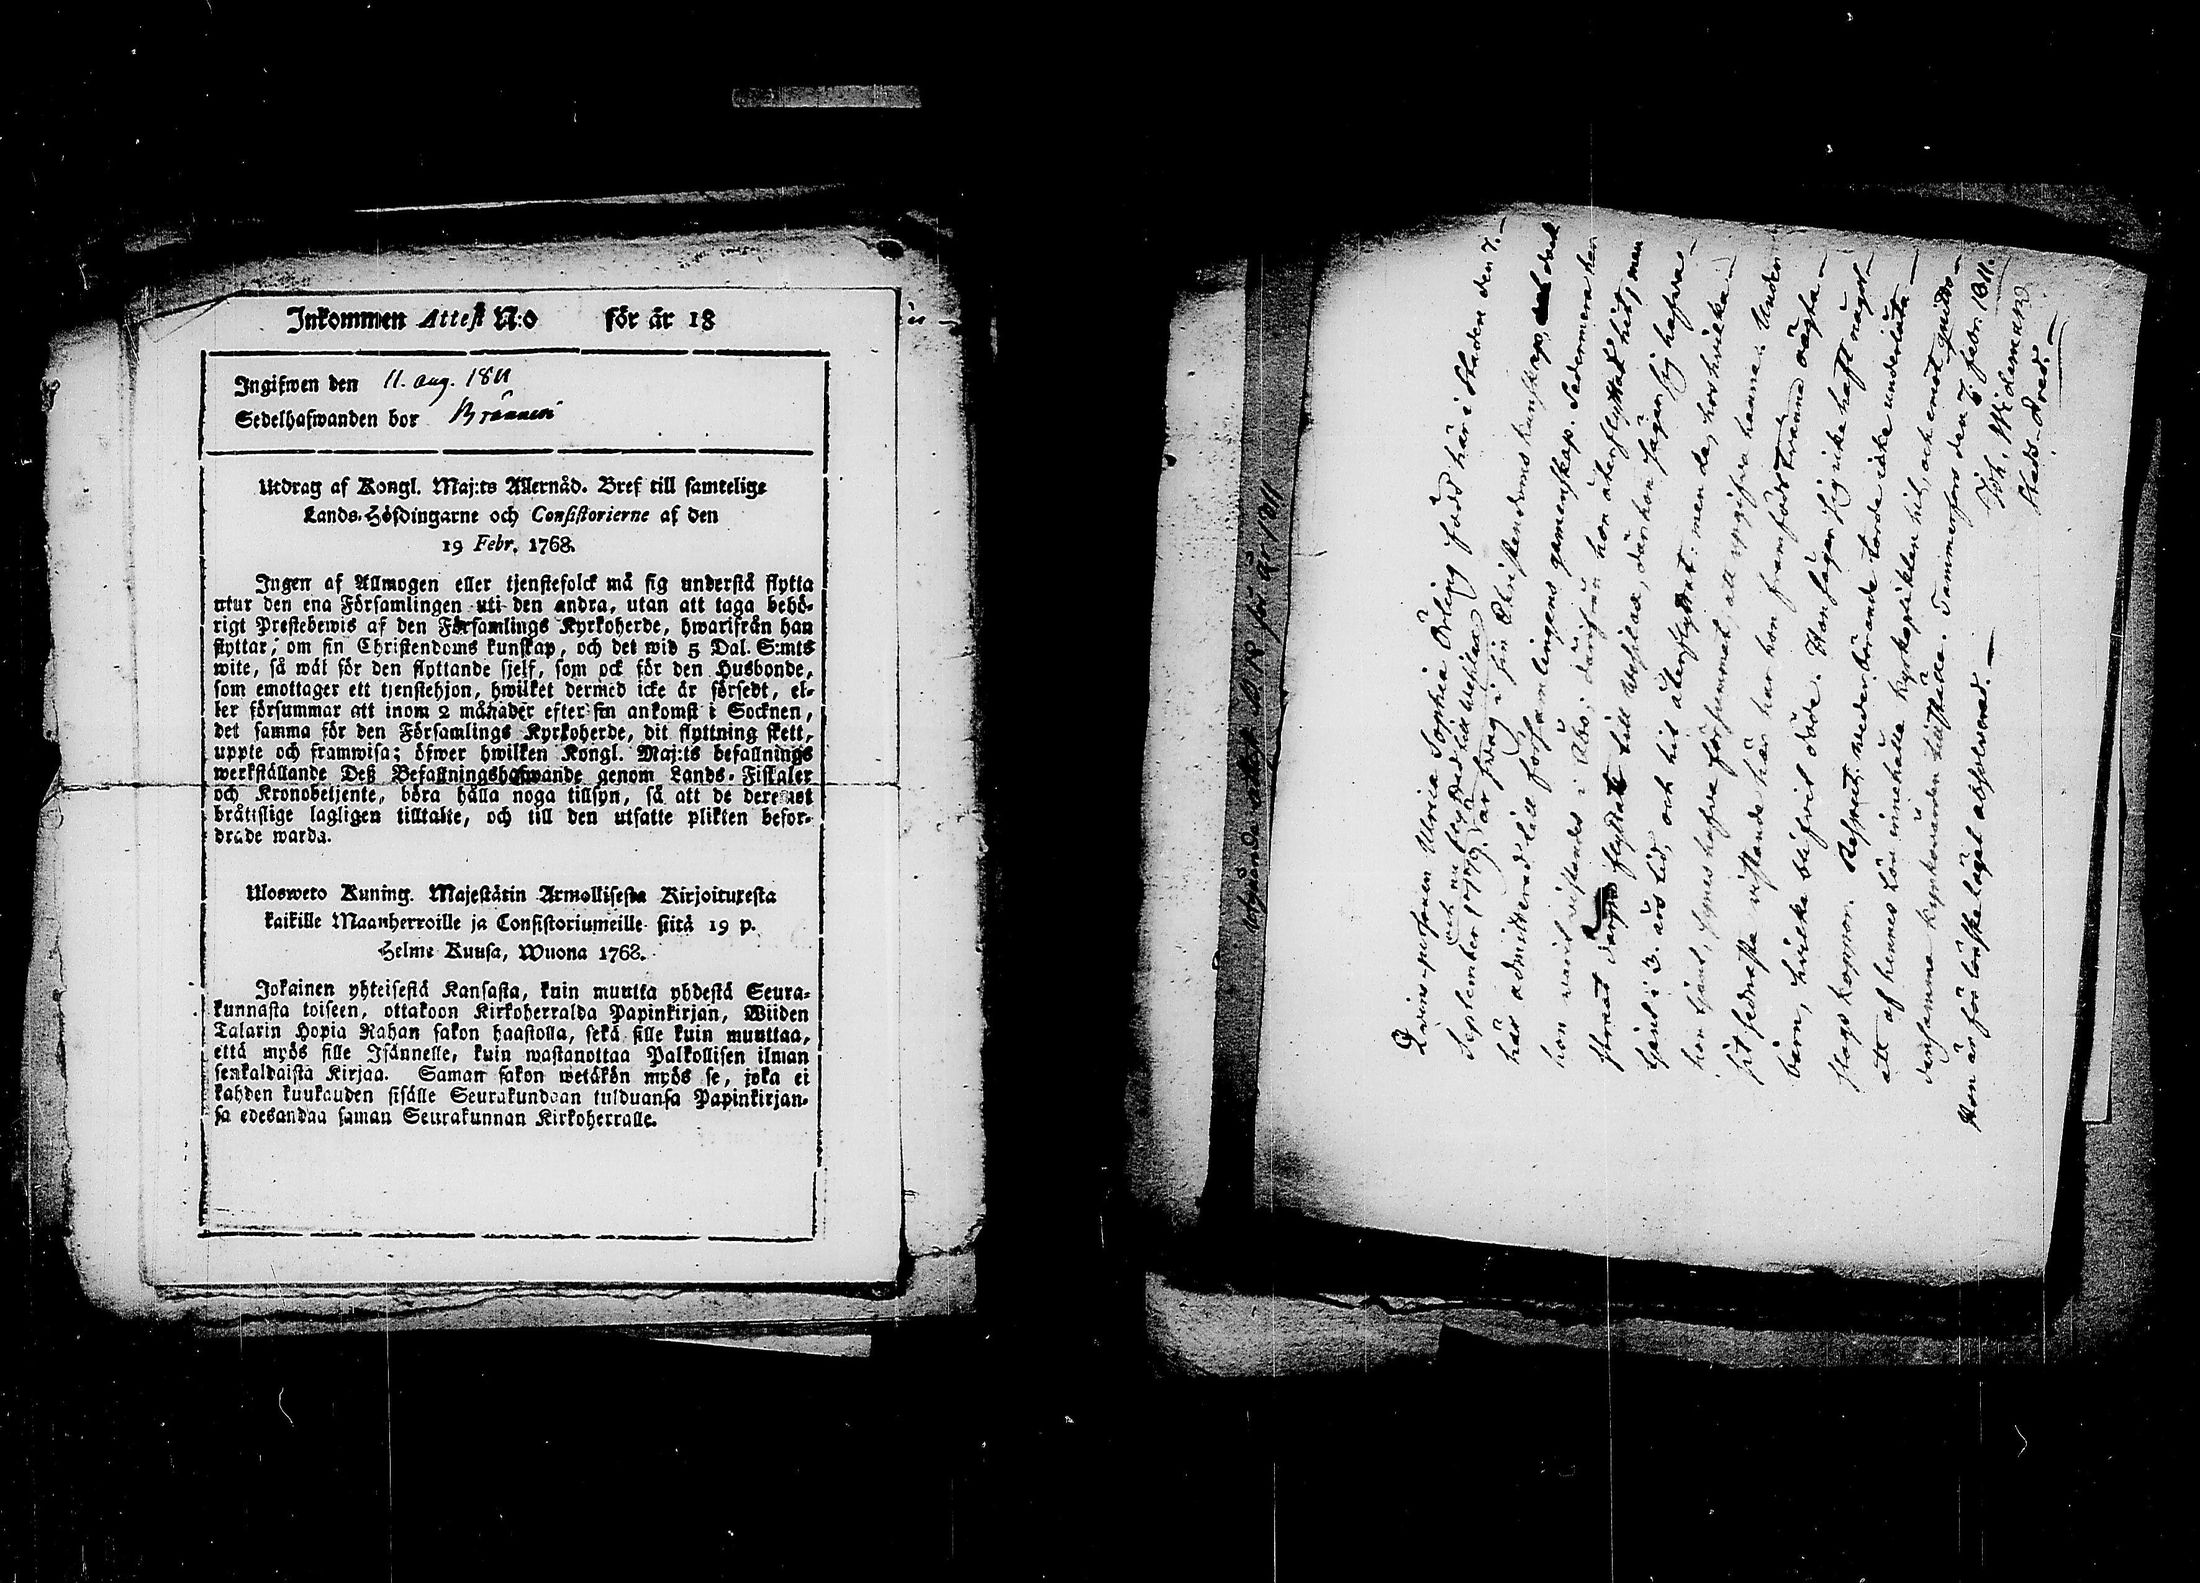 Inkommen Attest N:o för år 18
Ingifwen den 11. aug. 1811
Sedelhafwanden bor
Utdrag af Kongl. Maj:ts Allernåd. Bref till samtelige
Lands-Höfdingarne och Consistorierne af den
19 Febr. 1768.
Ingen af Allmogen eller tjenstefolck må sig understå flytta
utur den ena Församlingen uti den andra, utan att taga behö-
rigt Prestebewis af den Församlings Kyrkoherde, hwarifrån han
flyttar, om sin Christendoms kunskap, och det wid 5 Dal. S:mts
wite, så wäl för den flyttande sjelf, som ock för den Husbonde,
som emottager ett tjenstehjon, hwilket dermed icke är försedt, el-
ler försummar att inom 2 månader efter sin ankomst i Socknen,
det samma för den Församlings Kyrkoherde, dit flyttning skett,
uppte och framwisa; öfwer hwilken Kongl. Maj:ts befallnings
werkställande Deß Befallningshafwande genom Lands-Fiskaler
och Kronobetjente, böra hålla noga tillsyn, så att de deremot
bråttslige lagligen tilltalte, och till den utsatte plikten befor-
drade warda.
Ulosweto Kuning. Majestätin Armollisesta Kirjoituxesta
kaikille Maanherroille ja Consistoriumeille siitä 19 p.
Helme Kuusa, Wuona 1768.
Jokainen yhteisestä Kansasta, kuin muutta yhdestä Seura-
kunnasta toiseen, ottakoon Kirkoherralda Papinkirjan, Wiiden
Talarin Hopia Rahan sakon haastolla, sekä sille kuin muuttaa,
että myös sille Isännelle, kuin wastanottaa Palkollisen ilman
senkaldaista Kirjaa. Saman sakon wetäkön myös se, joka ei
kahden kuukauden sisälle Seurakundaan tulduansa Papinkirjan-
sa edesandaa saman Seurakunnan Kirkoherralle.
attest N 18 för år 1811
Qvins-personen Ulrica Sophia Örling född här i Staden den 7.
och nu flyttad till Wesilax
September 1779. är frägd i sin Christendoms kunskap, och
här admitterad till församlingens gemenskap. Sedermera har
hon warit wistandes i Åbo; därifrån hon återflyttat hit, men
straxt flyttat till Wesilax, där hon säger sig hafva
tjent i 3. års tid, och hit återflyttat: men de, hos hvilka
hon tjent, synes hafva försummat att uppgifva henne. Under
sit sednaste vistande här har hon framfödt tvenne oägta
barn, hvilka blifvit döde. Hon säger sig icke haft något
slags koppor. Respect. vederbörande torde icke underlåta
att af hennes lön innehålla kyrkoplikten hit, och emot
densamma kyrkovärden tillställa. Tammerfors den 7 febr. 1811.
Joh. Widemann
Hon är för lönskaläget absolverad.